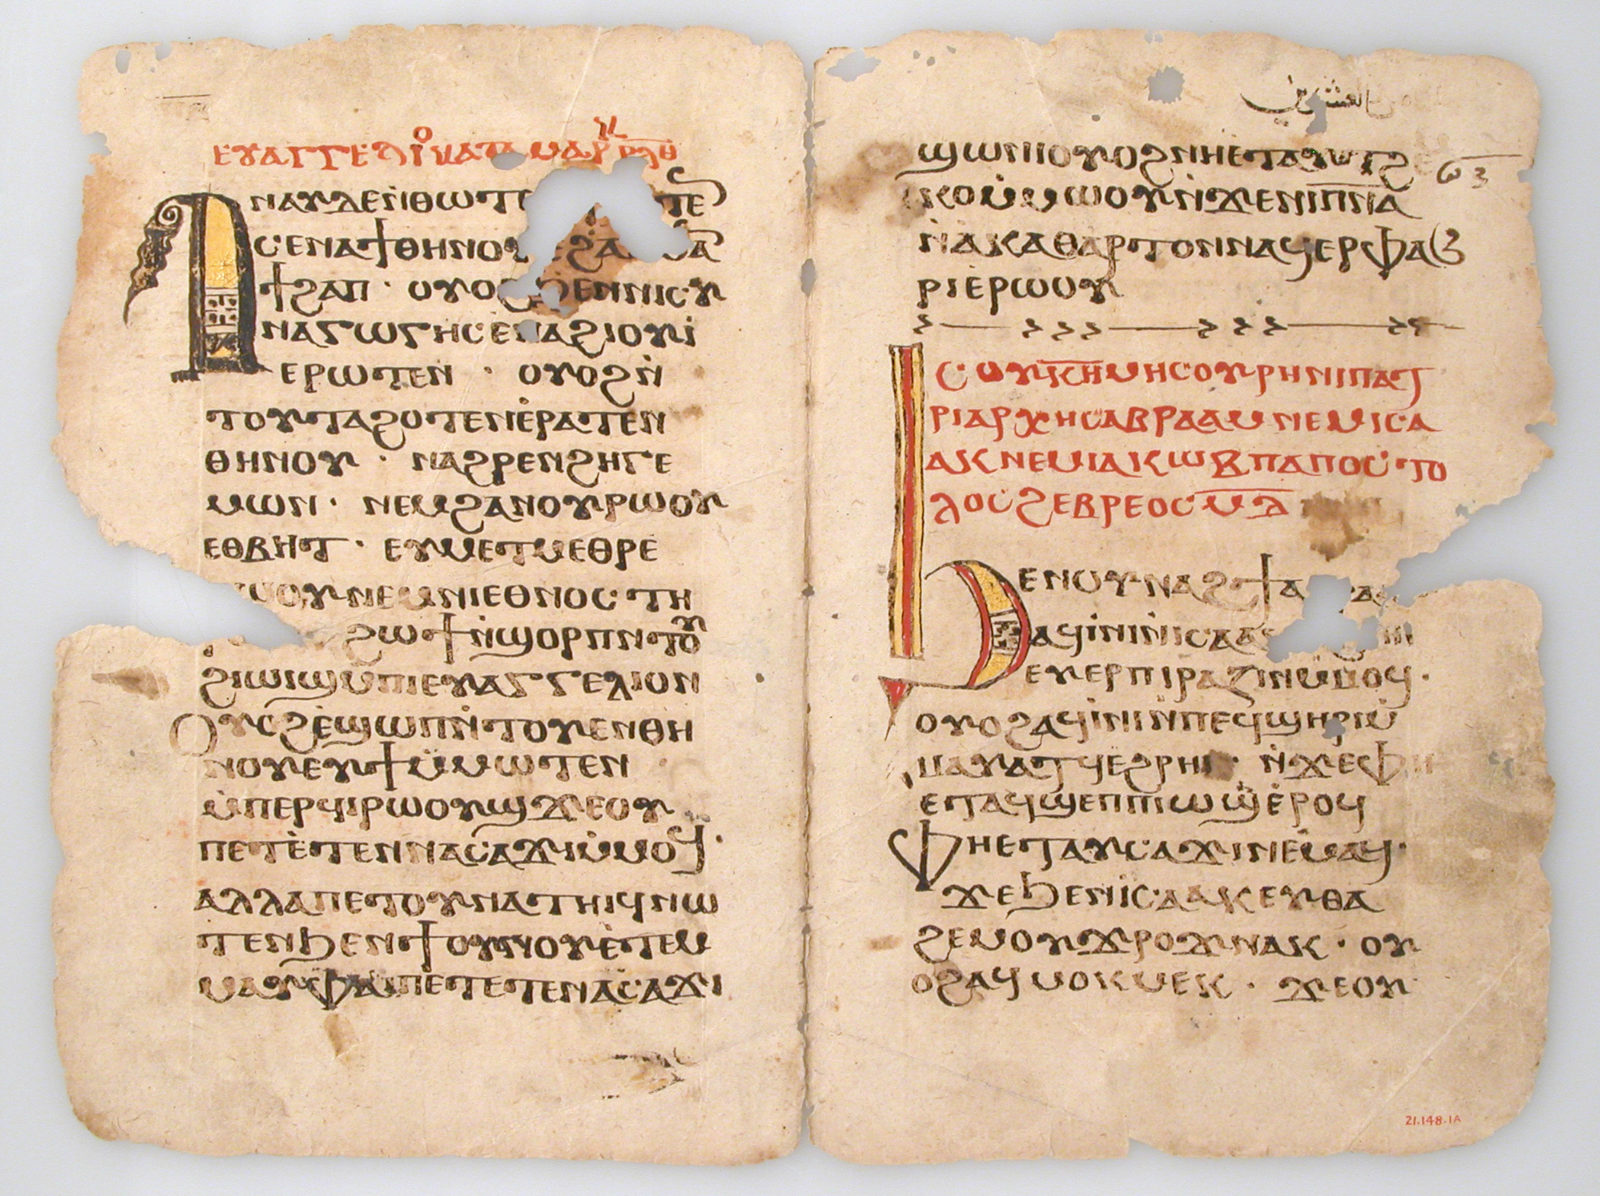 ⲉⲩⲁⲅⲅⲉⲗⲓⲟ ⲕⲁⲧⲁ ⲙⲁⲣ
ⲛⲁⲩϧⲉⲛⲑⲱⲧ
ⲥⲉⲛⲁϯⲑⲏⲛⲟⲩ
ϯϩⲁⲡ · ⲟⲩⲟϩ ϧⲉⲛⲛⲓⲥⲩ
ⲛⲁⲅⲱⲅⲏ ⲥⲉⲛⲁϩⲓⲟⲩⲓ̀
ⲉⲣⲱⲧⲉⲛ · ⲟⲩⲟϩⲛ̀
ⲧⲟⲩⲧⲁϩⲟⲧⲉⲛⲉ̀ⲣⲁⲧⲉⲛ
ⲑⲏⲛⲟⲩ · ⲛⲁϩⲣⲉⲛϩⲏⲅⲉ
ⲙⲱⲛ · ⲛⲉⲙϩⲁⲛⲟⲩⲣⲱⲟⲩ
ⲉⲑⲃⲏⲧ · ⲉⲩⲙⲉⲧⲙⲉⲑⲣⲉ
ⲛⲱⲟⲩⲛⲉⲙⲛⲓⲉⲑⲛⲟⲥ ⲧⲏ
ϩⲱϯⲛ̀ϣⲟⲣⲡⲛ̀ⲧⲟⲩ
ϩⲓⲱⲓϣⲙ̀ⲡⲓⲉⲩⲁⲅⲅⲉⲗⲓⲟⲛ
ⲟⲩⲟϩ ⲉ̀ϣⲱⲡ ⲛ̀ⲧⲟⲩⲉⲛⲑⲏ
ⲛⲟⲩⲉⲩϯⲙ̀ⲙⲱⲧⲉⲛ
ⲙ̀ⲡⲉⲣϥⲓⲣⲱⲟⲩϣϫⲉⲟⲩ
ⲡⲉⲧⲉ̀ⲧⲉⲛⲛⲁⲥⲁϫⲓⲙ̀ⲙⲟϥ ·
ⲁⲗⲗⲁⲡⲉⲧⲟⲩⲛⲁⲧⲏⲓϥⲛⲱ
ⲧⲉⲛϧⲉⲛϯⲟⲩⲛⲟⲩⲉ̀ⲧⲉⲙ
ⲙⲁⲩⲫⲁⲓⲡⲉⲧⲉⲧⲉⲛⲁⲥⲁϫⲓ
العشرين
ϣⲱⲛⲓⲟⲩⲟϩⲛⲏⲉⲧⲁⲩⲧϩ
ⲕⲟⲙ̀ⲙⲱⲟⲩⲛ̀ϫⲉⲛⲓⲡⲛ̅ⲁ̅
ⲛ̀ⲁⲕⲁⲑⲁⲣⲧⲟⲛⲛⲁϥⲉⲣⲫⲁϧ
ⲣⲓⲉ̀ⲣⲱⲟⲩ
ⲥⲟⲩⲕ̅ⲏ̅ⲙⲏⲥⲟⲩⲣⲏⲛⲓⲡⲁⲧ
ⲣⲓⲁⲣⲭⲏⲥⲁⲃⲣⲁⲁⲙⲛⲉⲙⲓⲥⲁ
ⲁⲕⲛⲉⲙⲓⲁⲕⲱⲃⲡⲁⲡⲟⲥⲧⲟ
ⲗⲟⲥϩⲉⲃⲣⲉⲟⲥ
ϧⲉⲛⲟⲩⲛⲁϩϯⲁ
ⲁϥⲓ̀ⲛⲓⲛ̀ⲓⲥⲁⲁ
ⲉⲩⲉⲣⲡⲓⲣⲁⲍⲓⲛⲙ̀ⲙⲟϥ ·
ⲟⲩⲟϩⲁϥⲓ̀ⲛⲓⲙ̀ⲡⲉϥϣⲏⲣⲓⲙ̀
ⲙⲁⲩⲁⲧϥⲉ̀ϩⲣⲏⲓ · ⲛ̀ϫⲉⲫⲏ
ⲉⲧⲁϥϣⲉⲡⲡⲓⲱϣⲉ̀ⲣⲟϥ
ⲫⲏⲉⲧⲁⲩⲥⲁϫⲓⲛⲉⲙⲁϥ ·
ϫⲉϧⲉⲛⲓⲥⲁⲁⲕⲉⲩⲑⲁ
ϩⲉⲙⲟⲩϫⲣⲟϫⲛⲁⲕ · ⲟⲩ
ⲟϩⲁϥⲙⲟⲕⲙⲉⲕ · ϫⲉⲟⲩ
21.148.1A